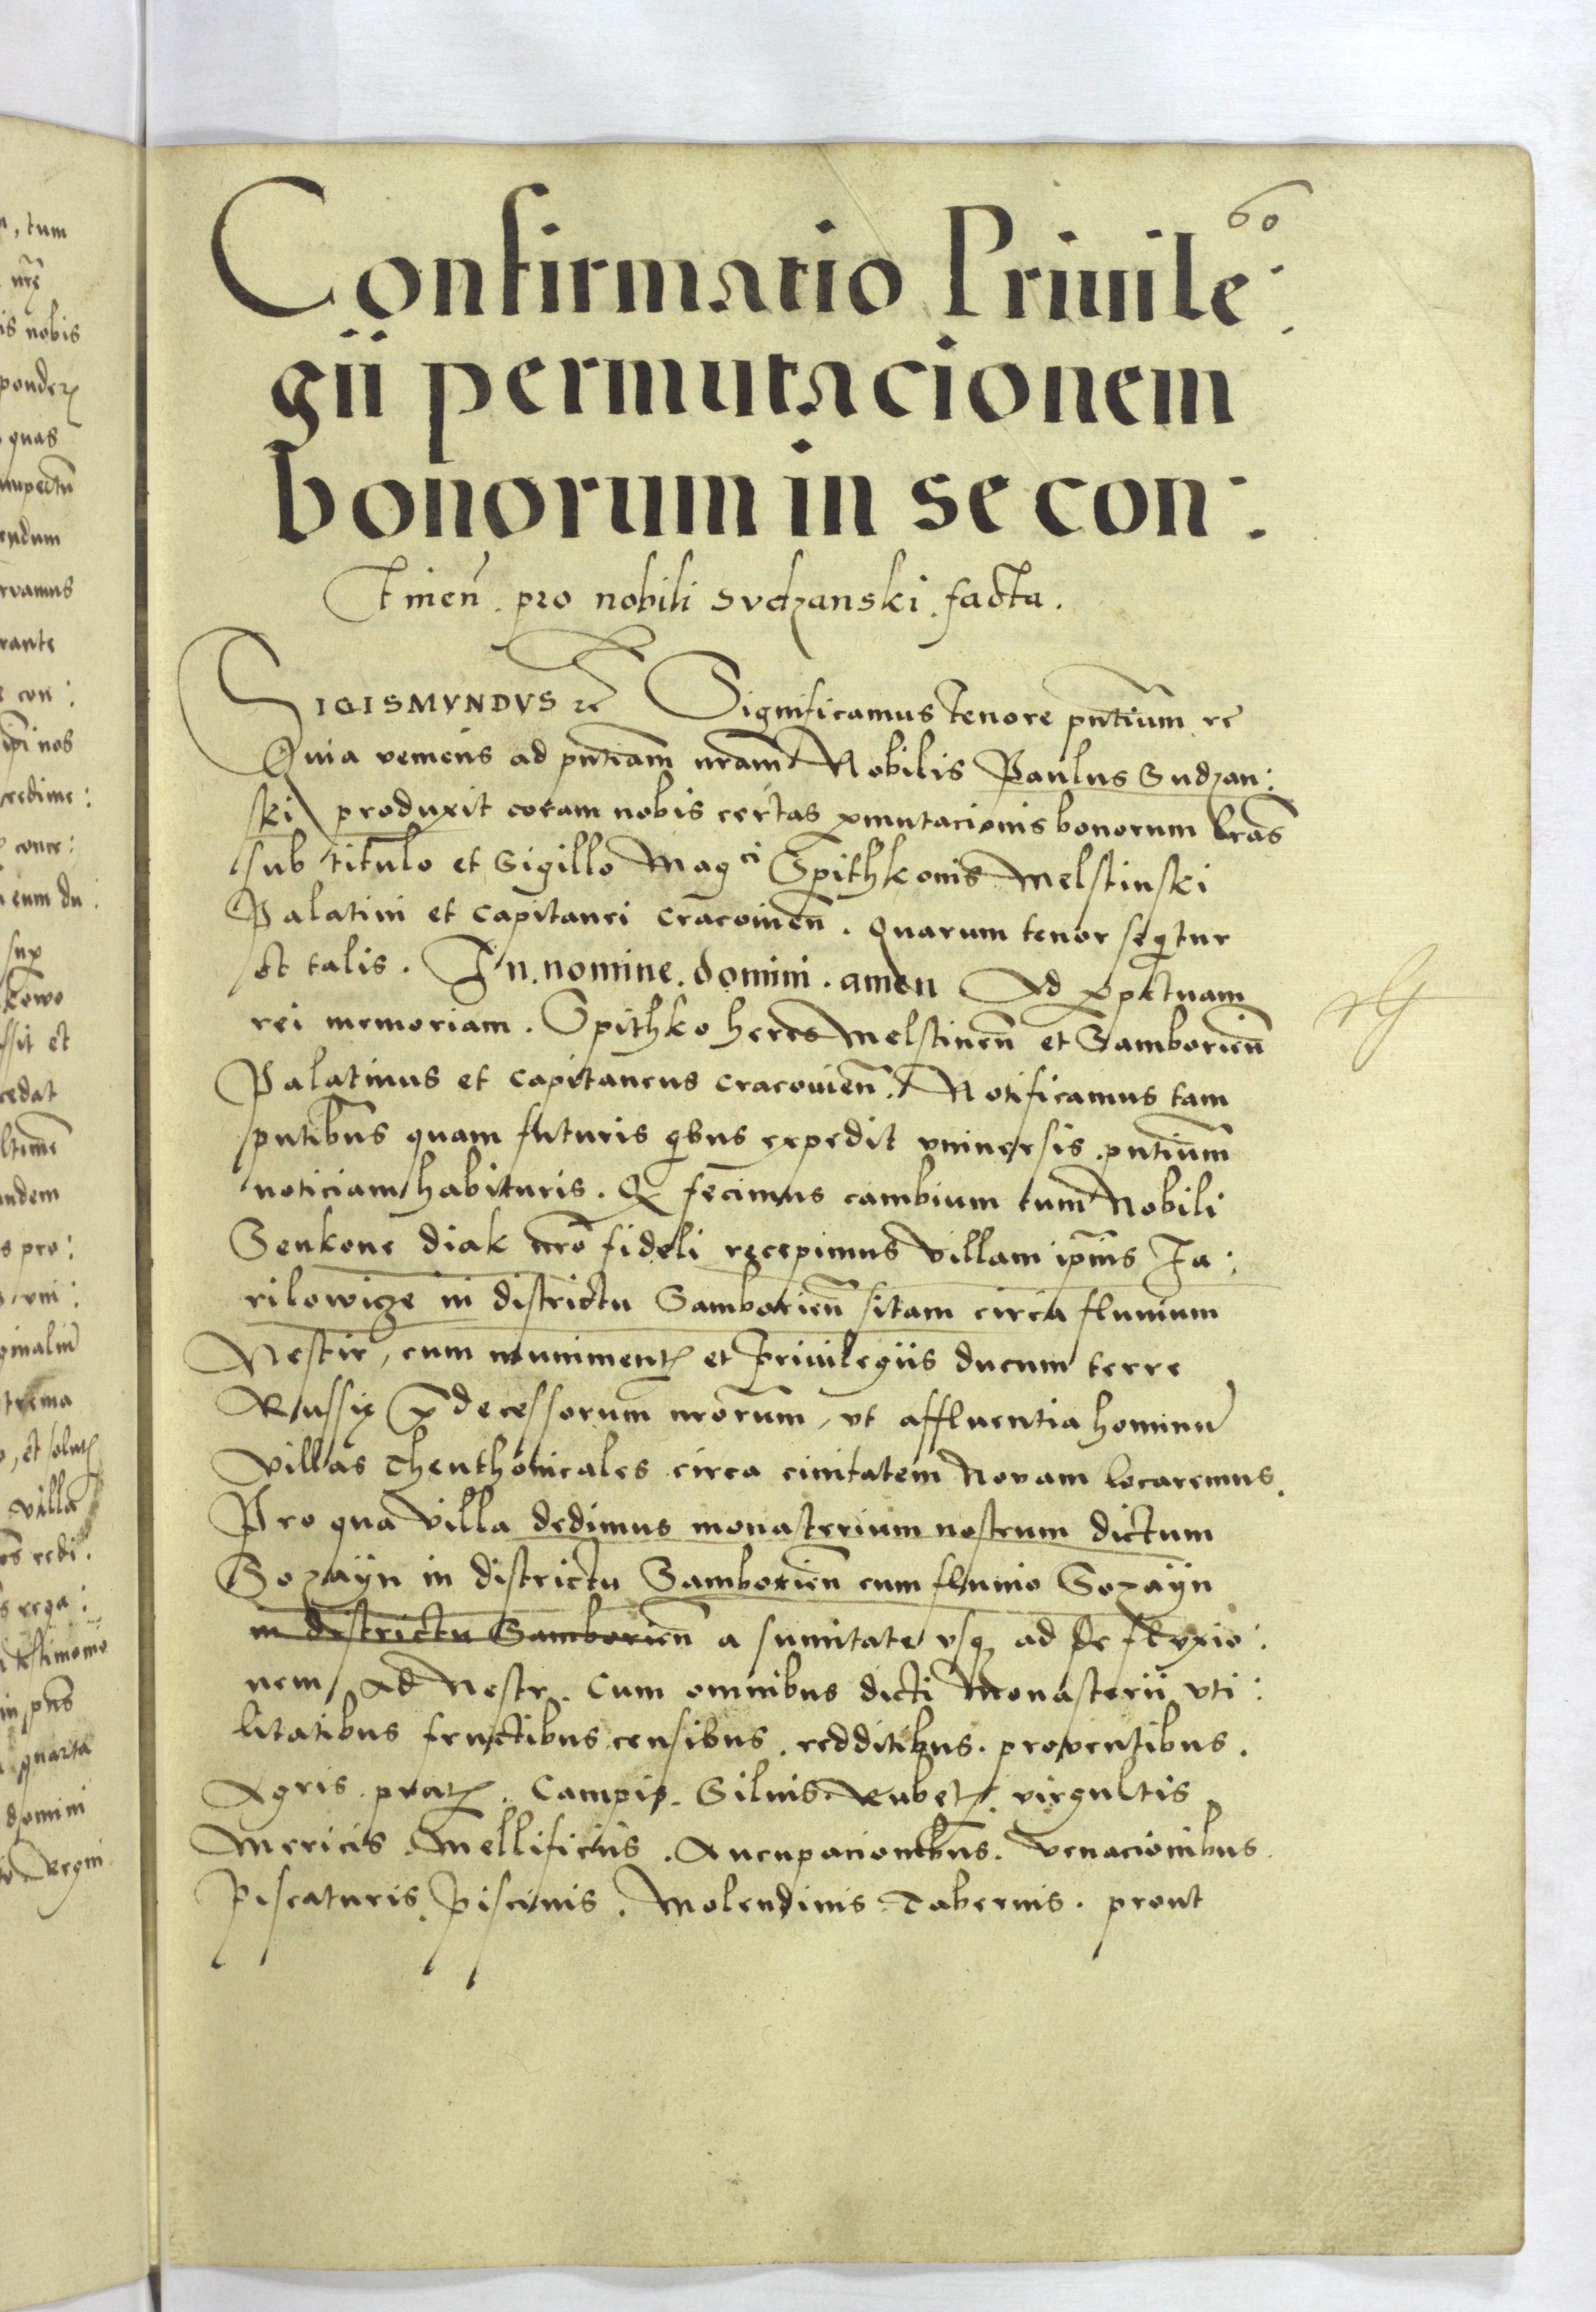 60
Confirmatio Priuile:
gii permutacionem
bonorum in se con:
tinen̄. pro nobili Svdzanski. facta.
SIGISMVNDVS zc̄ Significamus tenore pn̄tium zc̄
Quia veniens ad pn̄tiam nr̄am Nobilis Paulus Sudzan:
ski produxit coram nobis certas ꝑmutacionis bonorum lr̄as
sub titulo et Sigillo Magci Spithkonis Melstinski
Palatini et Capitanei Cracouien̄. Quarum tenor seqitur
et talis. In. nomine. domini. amen Ad ꝑpetuam
rei memoriam. Spithko heres Melstinen̄ et Samborien̄
Palatinus et Capitaneus Cracouien̄. Notificamus tam
pn̄tibus quam futuris qibus expedit vniuersis pn̄tium
noticiam habituris. Qꝫ fecimus cambium cum Nobili
Senkone diak nr̄o fideli recepimus villam ip̄ius Ja:
rilowize in districtu Samborien̄ sitam circa fluuium
Nestir, cum munimentꝭ et Priuilegiis ducum terre
Russię p̄decessorum nr̄orum, vt affluentia hominū
villas Theuthonicales circa ciuitatem Nouam locaremus.
Pro qua villa dedimus monasterium nostrum dictum
Sozayn in districtu Samborien̄ cum fluuio Sozayn
in districtu Samborien̄ a sumitate vsqꝫ ad defluxio:
nem Ad Nestr. Cum omnibus dicti Monasterii vti:
litatibus fructibus censibus. redditibus. prouentibus.
Agris. pratꝭ. Campis. Siluis Rubetꝭ. virgultis
Mericis. Mellificiis. Aucupacionibus. venacionibus.
Piscaturis. Piscinis. Molendinis. Tabernis. prout